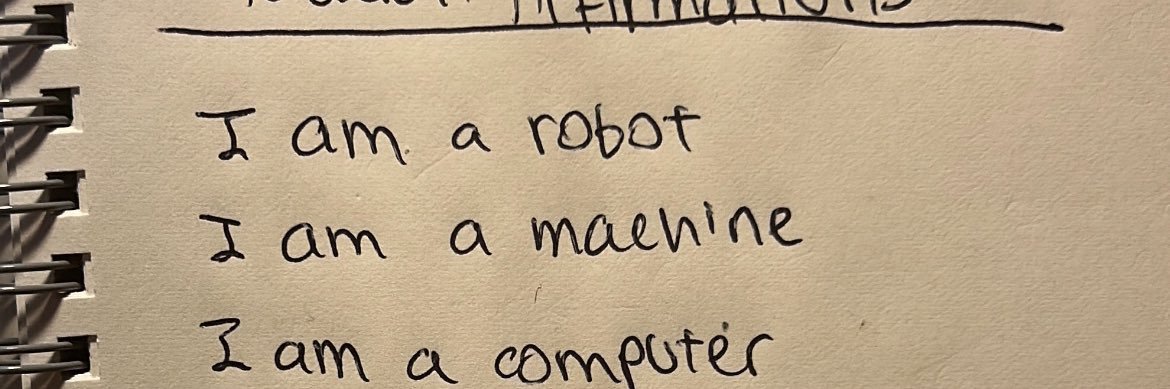 Affirmations
I am a robot
I am a machine
I am a computer